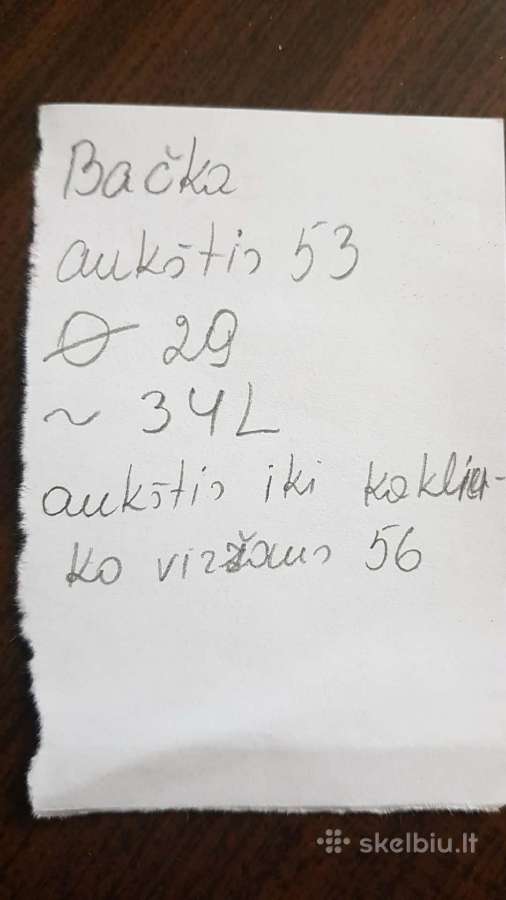 Bačka
aukštis 53
Ø 29
~ 34L
aukštis iki kakliu-
ko viržaus 56
skelbiu.lt